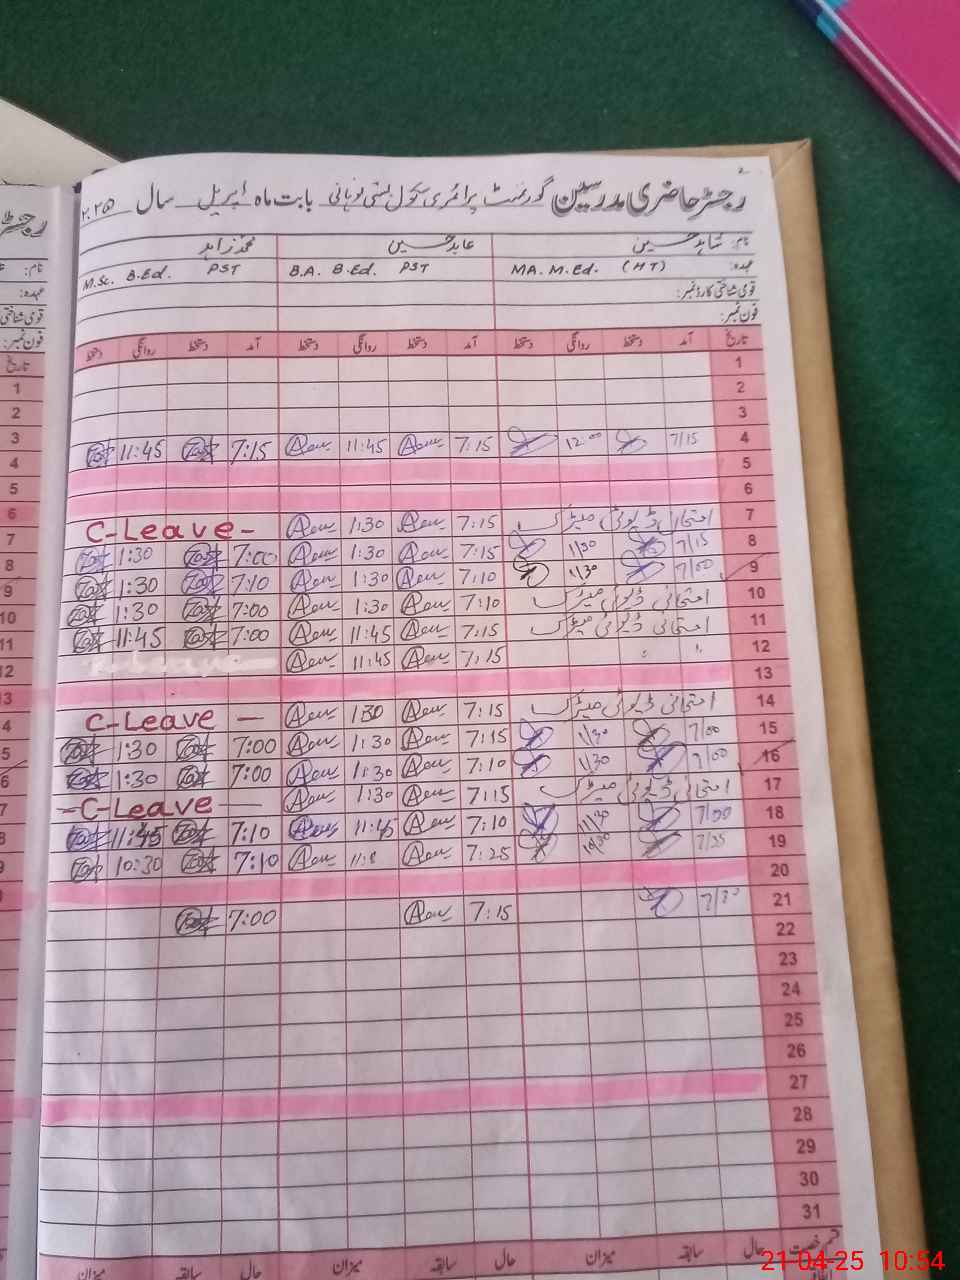 رجسٹر حاضری مدرسین گورنمنٹ پرائمری سکول بستی نوہانی بابت ماہ اپریل سال ۲۰۲۵
نام: شاہد حسین عابد حسین محمد زاہد
عہدہ: MA. M.Ed. (HT) B.A. B.Ed. PST M.Sc. B.Ed. PST
قومی شناختی کارڈ نمبر:
فون نمبر:
تاریخ آمد دستخط روانگی دستخط آمد دستخط روانگی دستخط آمد دستخط روانگی دستخط
1
2
3
4 7/15 12:00 7:15 11:45 7:15 11:45
5
6
7 امتحانی ڈیوٹی میٹرک 7:15 1:30 C-Leave-
8 7/15 1/30 7:15 1:30 7:00 1:30
9 7/00 1/30 7:10 1:30 7:10 1:30
10 امتحانی ڈیوٹی میٹرک 7:10 1:30 7:00 1:30
11 امتحانی ڈیوٹی میٹرک 7:15 11:45 7:00 11:45
12 7:15 11:45
13
14 امتحانی ڈیوٹی میٹرک 7:15 1:30 C-Leave —
15 7/00 1/30 7:15 1:30 7:00 1:30
16 7/00 1/30 7:10 1:30 7:00 1:30
17 امتحانی ڈیوٹی میٹرک 7:15 1:30 -C-Leave —
18 7/00 11/30 7:10 11:45 7:10 11:45
19 7/25 10/30 7:25 7:10 10:30
20
21 7/30 7:15 7:00
22
23
24
25
26
27
28
29
30
31
قسم رخصت حال سابقہ میزان حال سابقہ میزان حال سابقہ میزان
رجسٹر
نام:
عہدہ:
قومی شناختی
فون نمبر:
تاریخ
1
2
3
4
5
6
7
8
9
10
11
12
13
4
5
6
7
8
9
21-04-25 10:54